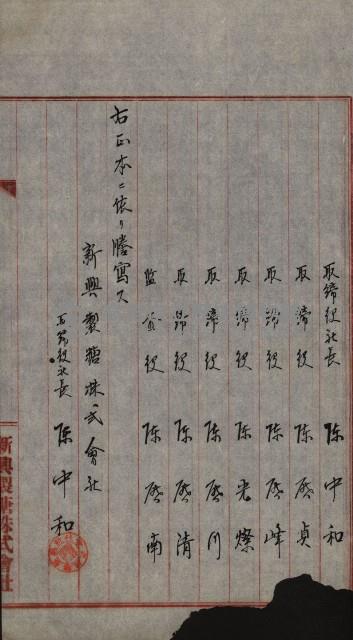 取締役社長 陳中和
取締役 陳啓貞
取締役 陳啓峰
取締役 陳光燦
取締役 陳啓川
取締役 陳啓清
監査役 陳啓南
右正本ニ依リ謄寫ス
新興製糖株式會社
取締役社長 陳中和
新興製糖株式會社